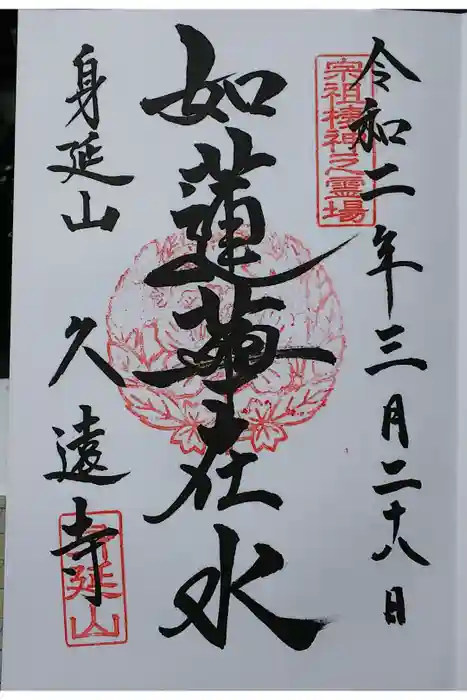 宗祖棲神之霊場
令和二年三月二十八日
如蓮華在水
身延山
久遠寺
身延山